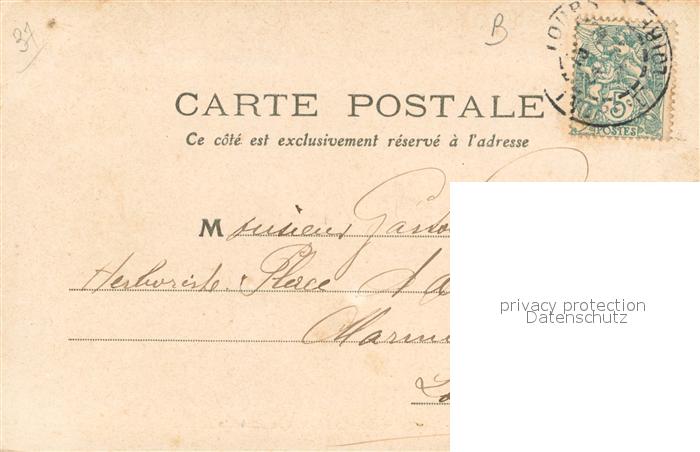 37
B
TOURS
5c
POSTES
CARTE POSTALE
Ce côté est exclusivement réservé à l'adresse
Monsieur Gaston
Herboriste. Place d'a
privacy protection
Datenschutz